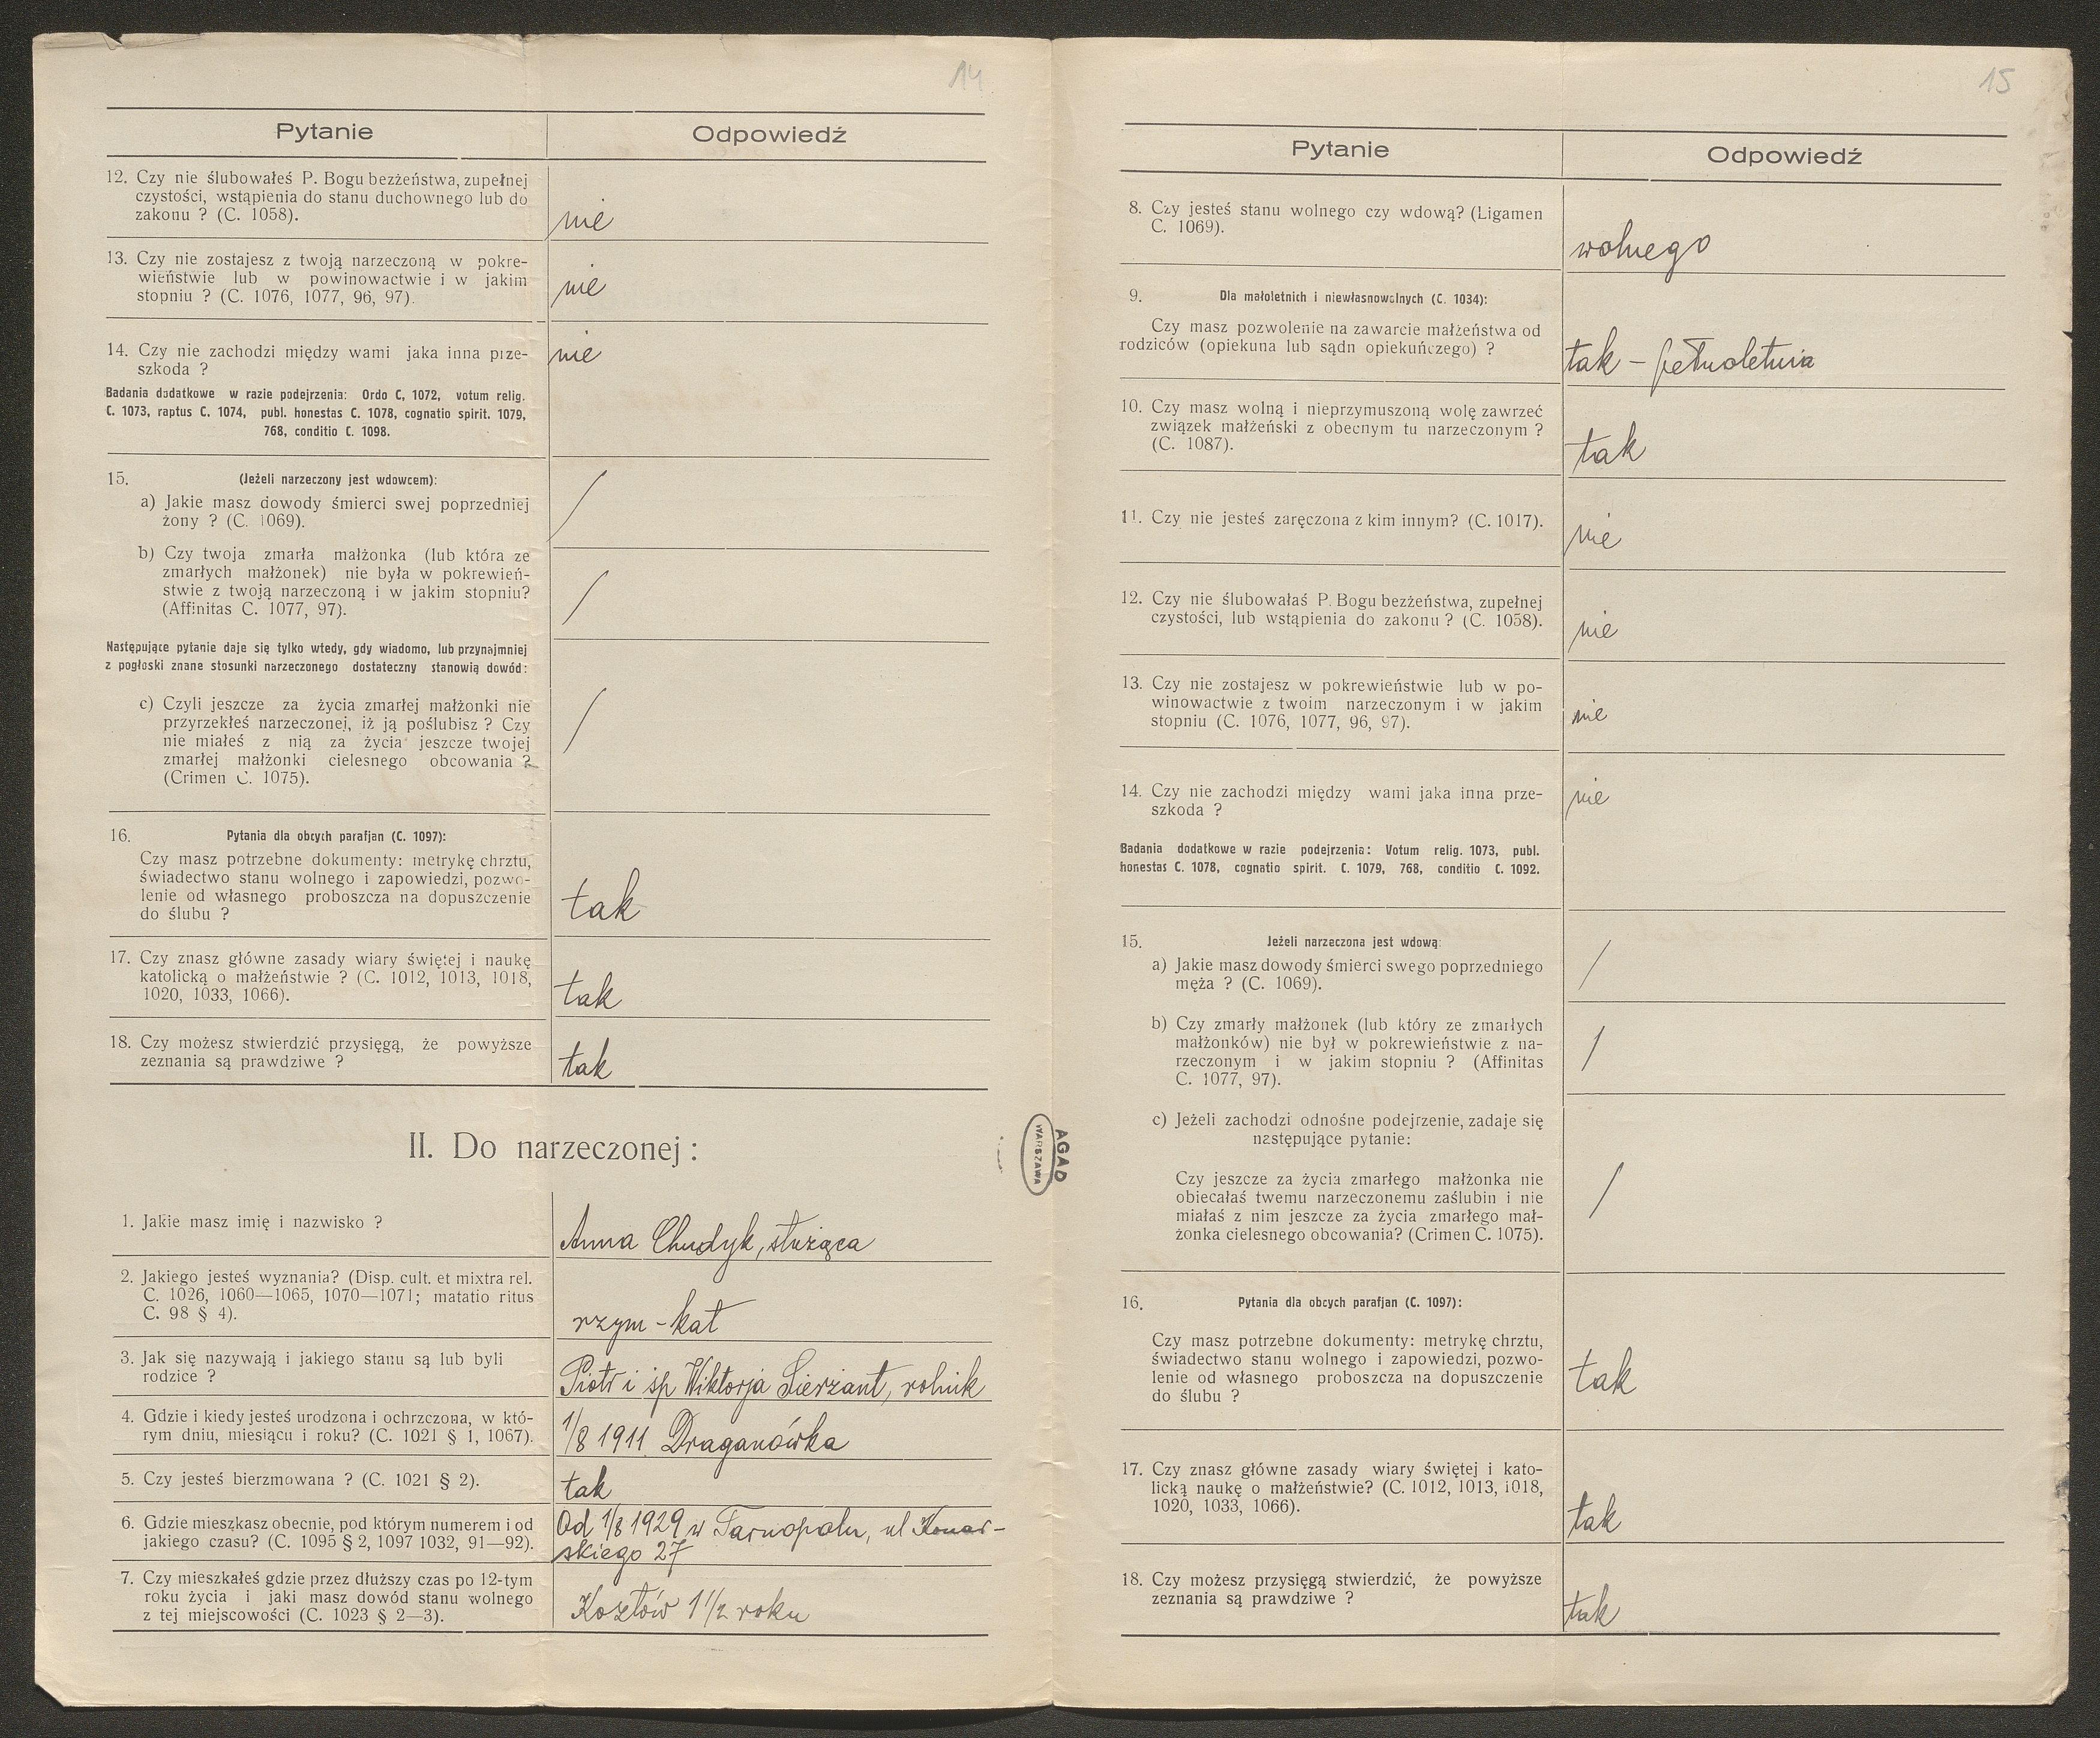 14
Pytanie
Odpowiedź
12. Czy nie ślubowałeś P. Bogu bezżeństwa, zupełnej
czystości, wstąpienia do stanu duchownego lub do
zakonu ? (C. 1058).
nie
13. Czy nie zostajesz z twoją narzeczoną w pokre-
wieństwie lub w powinowactwie i w jakim
stopniu ? (C. 1076, 1077, 96, 97).
nie
14. Czy nie zachodzi między wami jaka inna prze-
szkoda ?
nie
Badania dodatkowe w razie podejrzenia: Ordo C, 1072, votum relig.
C. 1073, raptus C. 1074, publ. honestas C. 1078, cognatio spirit. 1079,
768, conditio C. 1098.
15. (Jeżeli narzeczony jest wdowcem):
a) Jakie masz dowody śmierci swej poprzedniej
żony ? (C. 1069).
/
b) Czy twoja zmarła małżonka (lub która ze
zmarłych małżonek) nie była w pokrewień-
stwie z twoją narzeczoną i w jakim stopniu?
(Affinitas C. 1077, 97).
/
Następujące pytanie daje się tylko wtedy, gdy wiadomo, lub przynajmniej
z pogłoski znane stosunki narzeczonego dostateczny stanowią dowód:
c) Czyli jeszcze za życia zmarłej małżonki nie
przyrzekłeś narzeczonej, iż ją poślubisz ? Czy
nie miałeś z nią za życia jeszcze twojej
zmarłej małżonki cielesnego obcowania ?
(Crimen C. 1075).
/
16. Pytania dla obcych parafjan (C. 1097):
Czy masz potrzebne dokumenty: metrykę chrztu,
świadectwo stanu wolnego i zapowiedzi, pozwo-
lenie od własnego proboszcza na dopuszczenie
do ślubu ?
tak
17. Czy znasz główne zasady wiary świętej i naukę
katolicką o małżeństwie ? (C. 1012, 1013, 1018,
1020, 1033, 1066).
tak
18. Czy możesz stwierdzić przysięgą, że powyższe
zeznania są prawdziwe ?
tak
II. Do narzeczonej :
1. Jakie masz imię i nazwisko ?
Anna Chudyk, służąca
2. Jakiego jesteś wyznania? (Disp. cult. et mixtra rel.
C. 1026, 1060—1065, 1070—1071; matatio ritus
C. 98 § 4).
rzym-kat
3. Jak się nazywają i jakiego stanu są lub byli
rodzice ?
Piotr i śp Wiktorja Sierżant, rolnik
4. Gdzie i kiedy jesteś urodzona i ochrzczona, w któ-
rym dniu, miesiącu i roku? (C. 1021 § 1, 1067).
1/8 1911 Draganówka
5. Czy jesteś bierzmowana ? (C. 1021 § 2).
tak
6. Gdzie mieszkasz obecnie, pod którym numerem i od
jakiego czasu? (C. 1095 § 2, 1097 1032, 91—92).
Od 1/8 1929 w Tarnopolu, ul Konar-
skiego 27
7. Czy mieszkałeś gdzie przez dłuższy czas po 12-tym
roku życia i jaki masz dowód stanu wolnego
z tej miejscowości (C. 1023 § 2—3).
Kozłów 1 1/2 roku
AGAD
WARSZAWA
15
Pytanie
Odpowiedź
8. Czy jesteś stanu wolnego czy wdową? (Ligamen
C. 1069).
wolnego
9. Dla małoletnich i niewłasnowolnych (C. 1034):
Czy masz pozwolenie na zawarcie małżeństwa od
rodziców (opiekuna lub sądn opiekuńczego) ?
tak – pełnoletnia
10. Czy masz wolną i nieprzymuszoną wolę zawrzeć
związek małżeński z obecnym tu narzeczonym ?
(C. 1087).
tak
11. Czy nie jesteś zaręczona z kim innym? (C. 1017).
nie
12. Czy nie ślubowałaś P. Bogu bezżeństwa, zupełnej
czystości, lub wstąpienia do zakonu ? (C. 1058).
nie
13. Czy nie zostajesz w pokrewieństwie lub w po-
winowactwie z twoim narzeczonym i w jakim
stopniu (C. 1076, 1077, 96, 97).
nie
14. Czy nie zachodzi między wami jaka inna prze-
szkoda ?
nie
Badania dodatkowe w razie podejrzenia: Votum relig. 1073, publ.
honestas C. 1078, cognatio spirit. C. 1079, 768, conditio C. 1092.
15. Jeżeli narzeczona jest wdową:
a) Jakie masz dowody śmierci swego poprzedniego
męża ? (C. 1069).
/
b) Czy zmarły małżonek (lub który ze zmarłych
małżonków) nie był w pokrewieństwie z na-
rzeczonym i w jakim stopniu ? (Affinitas
C. 1077, 97).
/
c) Jeżeli zachodzi odnośne podejrzenie, zadaje się
następujące pytanie:
Czy jeszcze za życia zmarłego małżonka nie
obiecałaś twemu narzeczonemu zaślubin i nie
miałaś z nim jeszcze za życia zmarłego mał-
żonka cielesnego obcowania? (Crimen C. 1075).
/
16. Pytania dla obcych parafjan (C. 1097):
Czy masz potrzebne dokumenty: metrykę chrztu,
świadectwo stanu wolnego i zapowiedzi, pozwo-
lenie od własnego proboszcza na dopuszczenie
do ślubu ?
tak
17. Czy znasz główne zasady wiary świętej i kato-
licką naukę o małżeństwie? (C. 1012, 1013, 1018,
1020, 1033, 1066).
tak
18. Czy możesz przysięgą stwierdzić, że powyższe
zeznania są prawdziwe ?
tak